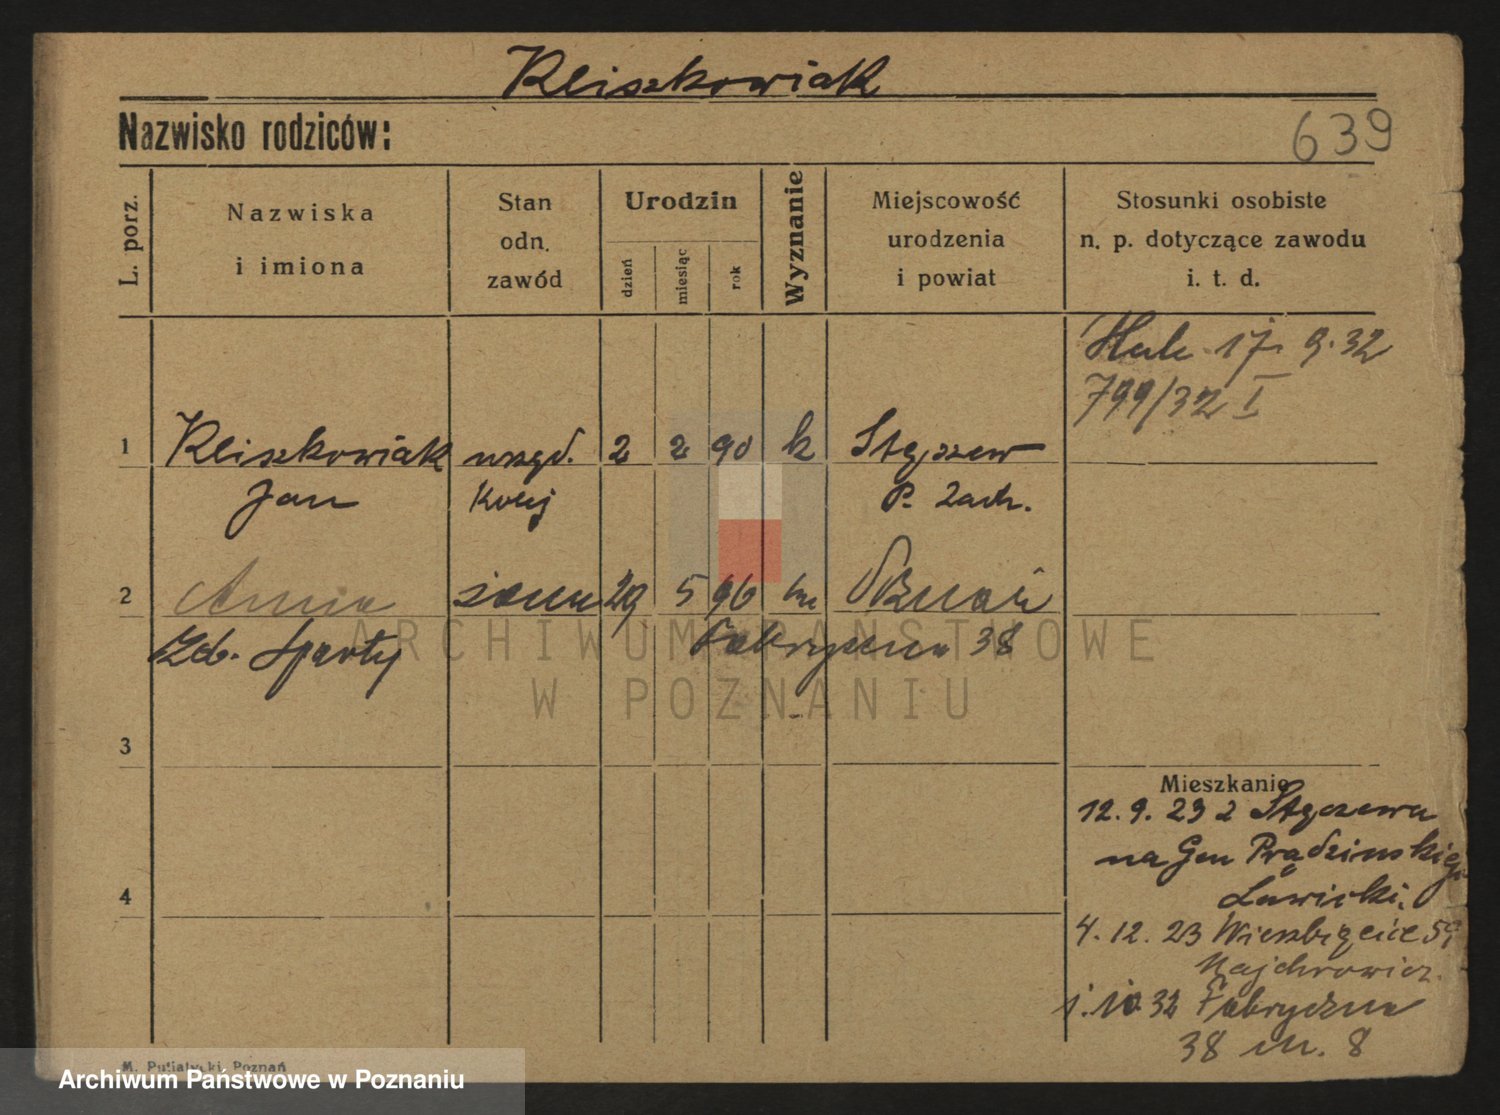 Kliszkowiak
Nazwisko rodziców:
639
L. porz.
Nazwiska
i imiona
Stan
odn.
zawód
Urodzin
dzień
miesiąc
rok
Wyznanie
Miejscowość
urodzenia
i powiat
Stosunki osobiste
n. p. dotyczące zawodu
i. t. d.
17. 9. 32
799/32 I
1 Kliszkowiak urzęd. 2 2 90 k Stęszew
Jan Kolej P. Zach.
2 Anna żona 29 5 96 Poznań
Fabryczna 38
ARCHIWUM PAŃSTWOWE
W POZNANIU
3
Mieszkanie
12. 9. 23 z Stęszewa
na Gen Prądzinskiego
Ławicki.
4
4. 12. 23 Wierzbięcice 59
Majchrowicz.
1. 10 32 Fabryczna
38 m. 8
M. Putiatycki, Poznań
Archiwum Państwowe w Poznaniu